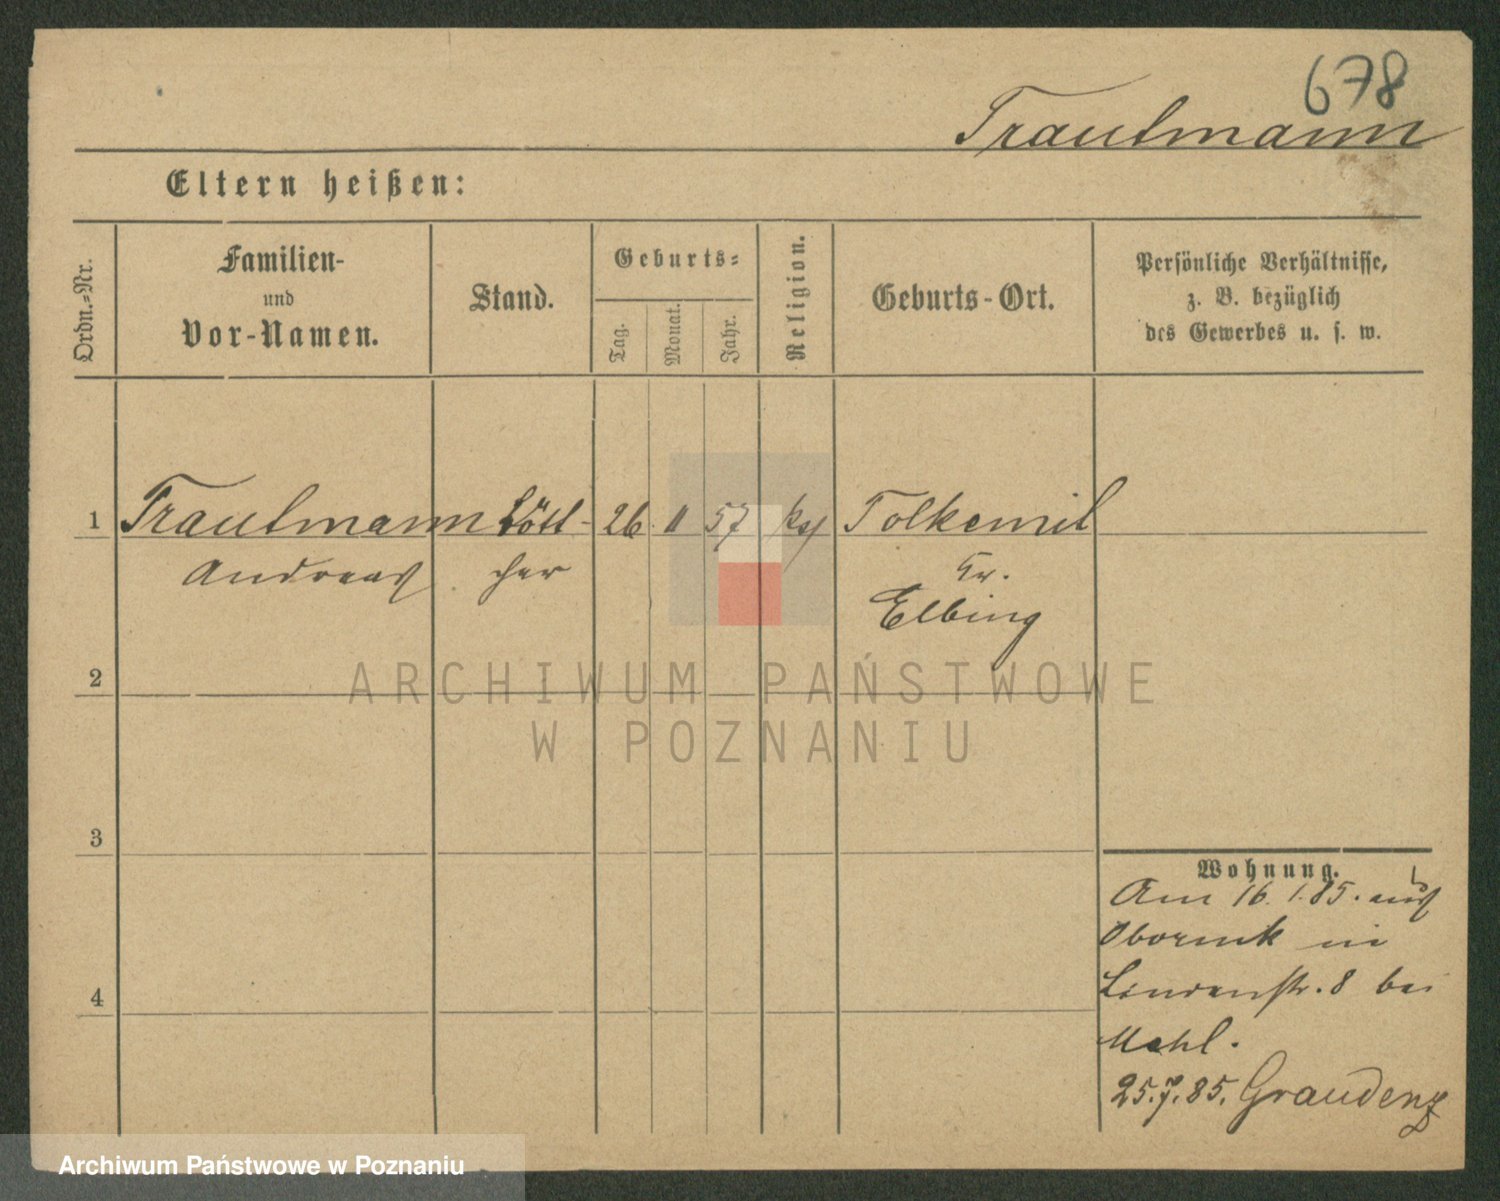 678
Trautmann
Eltern heißen:
Ordn.-Nr.
Familien-
und
Vor-Namen.
Stand.
Geburts-
Tag.
Monat.
Jahr.
Religion.
Geburts-Ort.
Persönliche Verhältnisse,
z. B. bezüglich
des Gewerbes u. s. w.
1 Trautmann Bött- 26 11 57 kath Tolkemit
Andreas cher Kr.
Elbing
2
ARCHIWUM PAŃSTWOWE
W POZNANIU
3
Wohnung.
Am 16.1.85. aus
Obornik in
4
Lindenstr. 8 bei
25.7.85. Graudenz
Archiwum Państwowe w Poznaniu